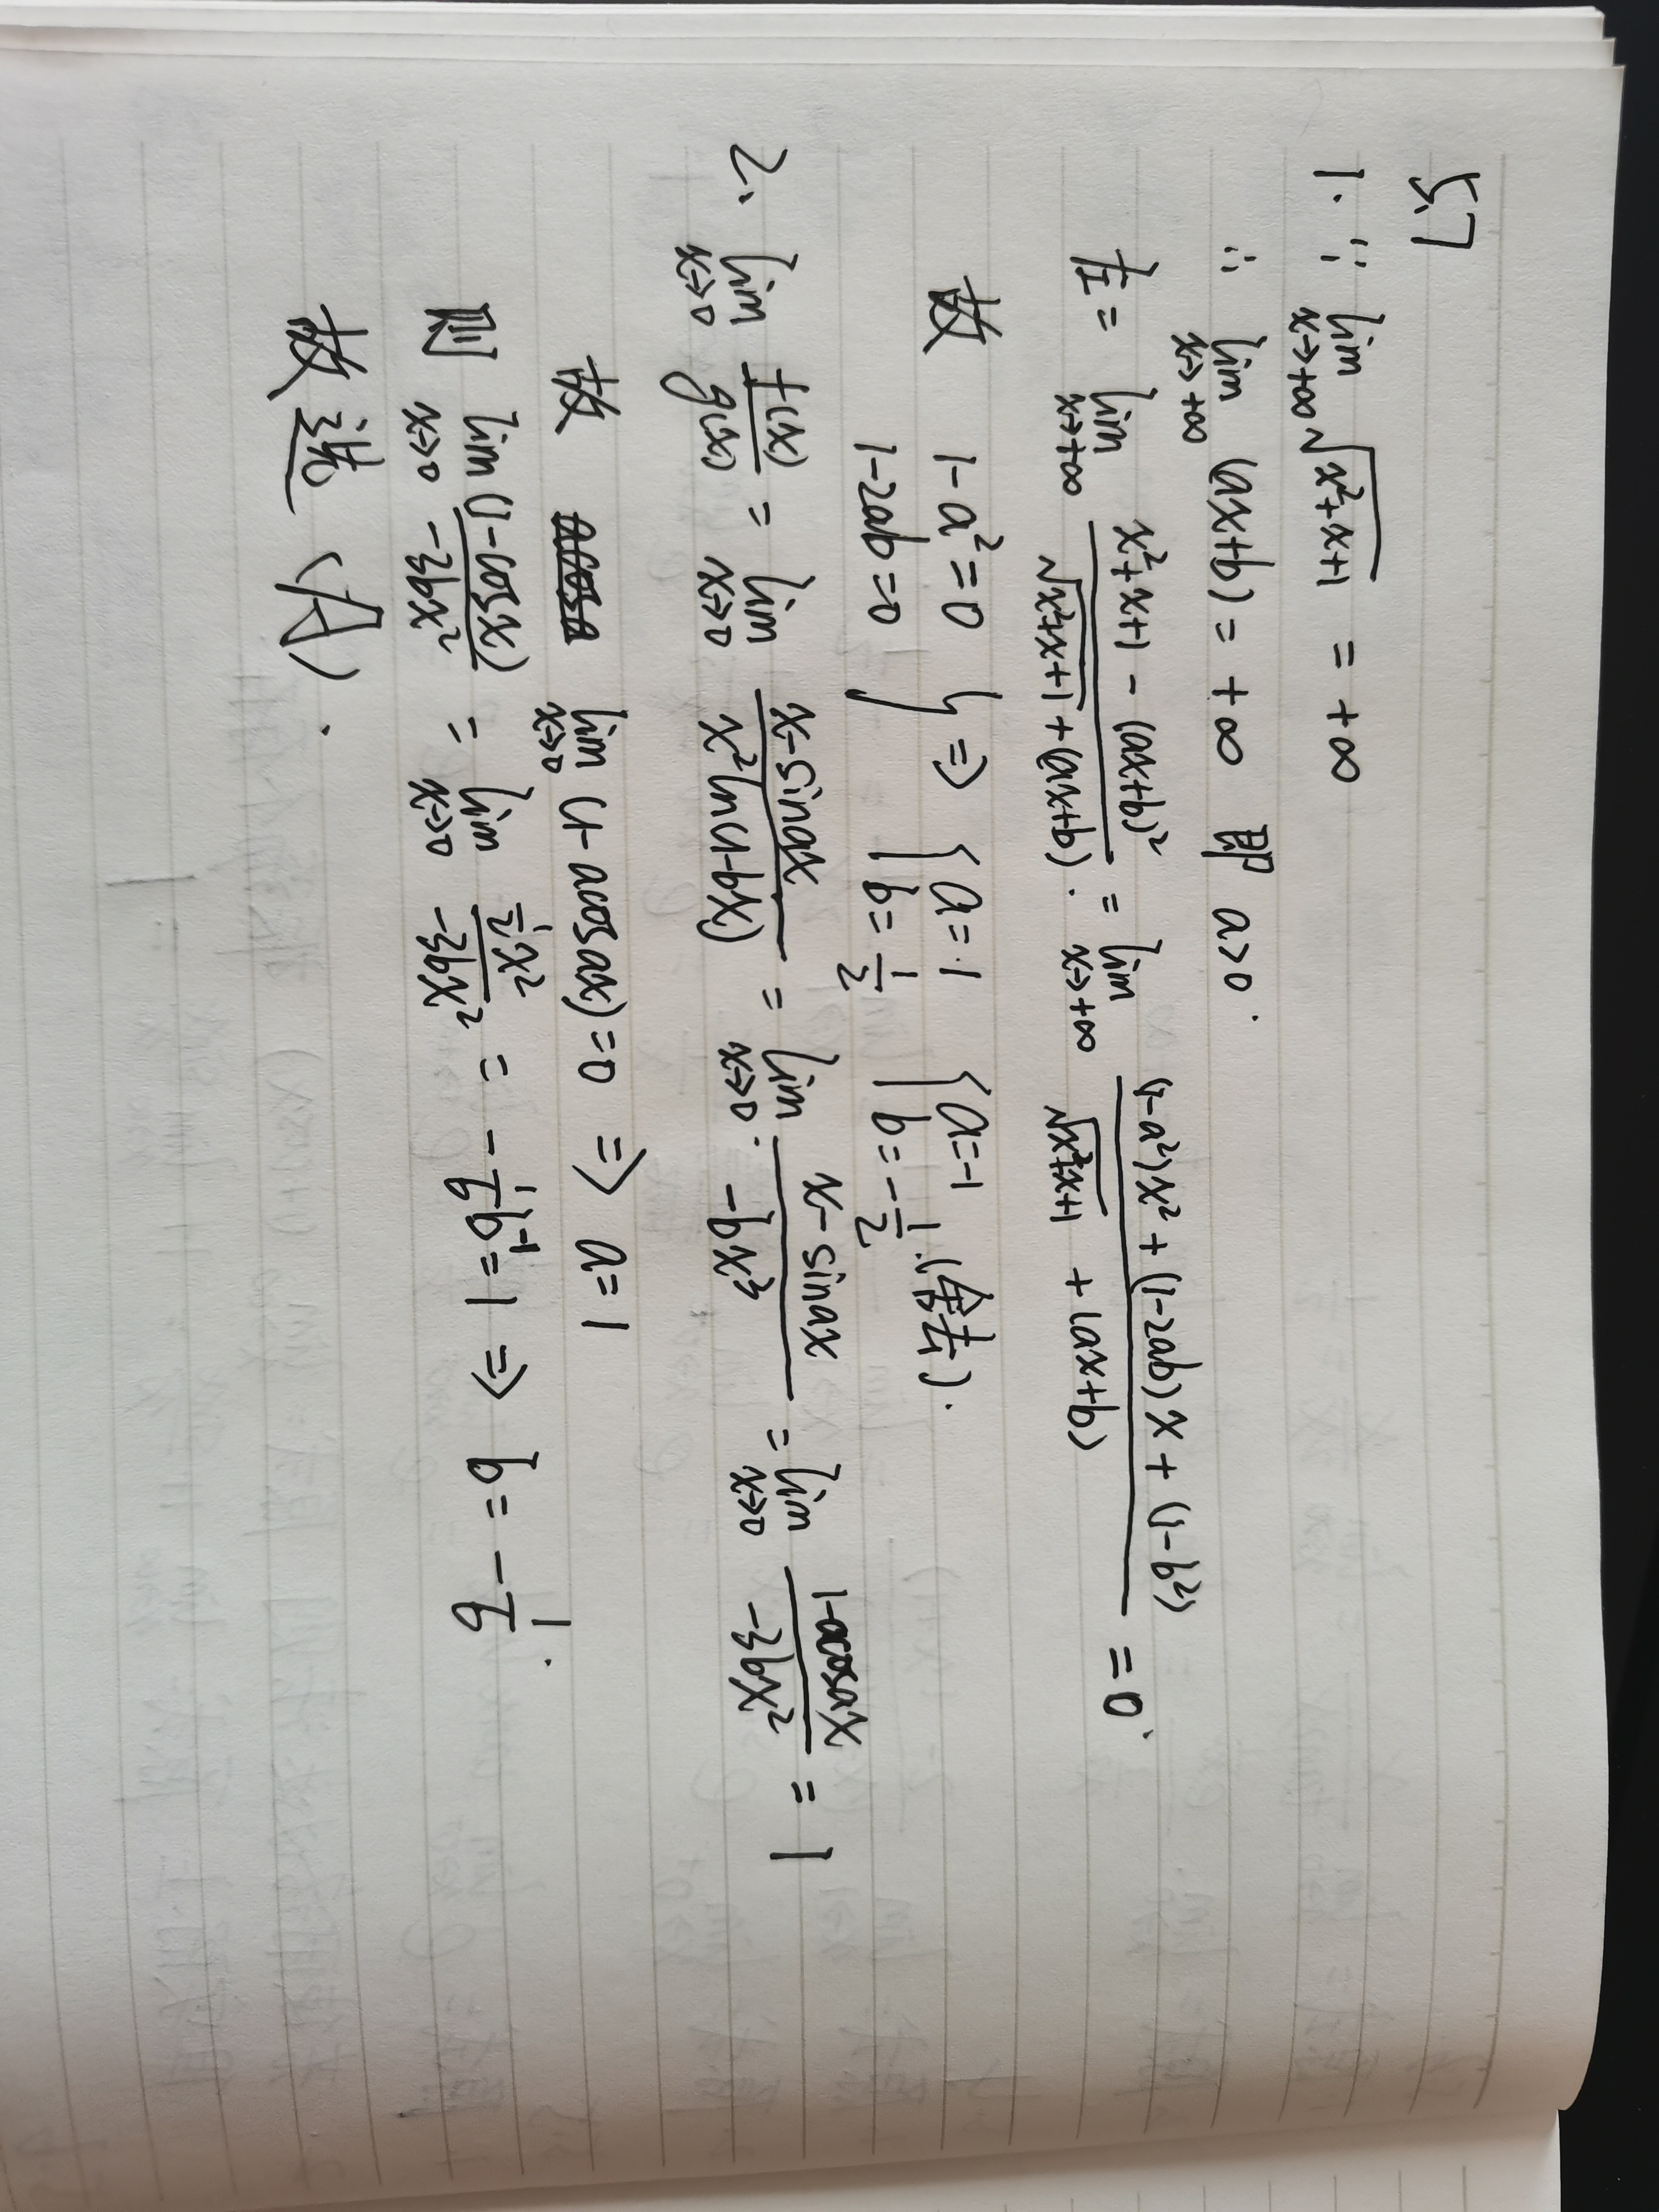 5.7
1. ∵ lim_{x→+∞} √(x²+x+1) = +∞
∴ lim_{x→+∞} (ax+b) = +∞ 即 a>0.
左 = lim_{x→+∞} (x²+x+1-(ax+b)²)/(√(x²+x+1)+(ax+b)) = lim_{x→+∞} ((1-a²)x²+(1-2ab)x+(1-b²))/(√(x²+x+1)+(ax+b)) = 0.
故 1-a²=0 } ⇒ { a=1 { a=-1 (舍去).
1-2ab=0 b=1/2 b=-1/2
2. lim_{x→0} f(x)/g(x) = lim_{x→0} (x-sinax)/(x²ln(1-bx)) = lim_{x→0} (x-sinax)/(-bx³) = lim_{x→0} (1-acosax)/(-3bx²) = 1
故 lim_{x→0} (1-acosax)=0 ⇒ a=1
则 lim_{x→0} (1-cosx)/(-3bx²) = lim_{x→0} (½x²)/(-3bx²) = -1/6 b⁻¹ = 1 ⇒ b=-1/6.
故选 (A).